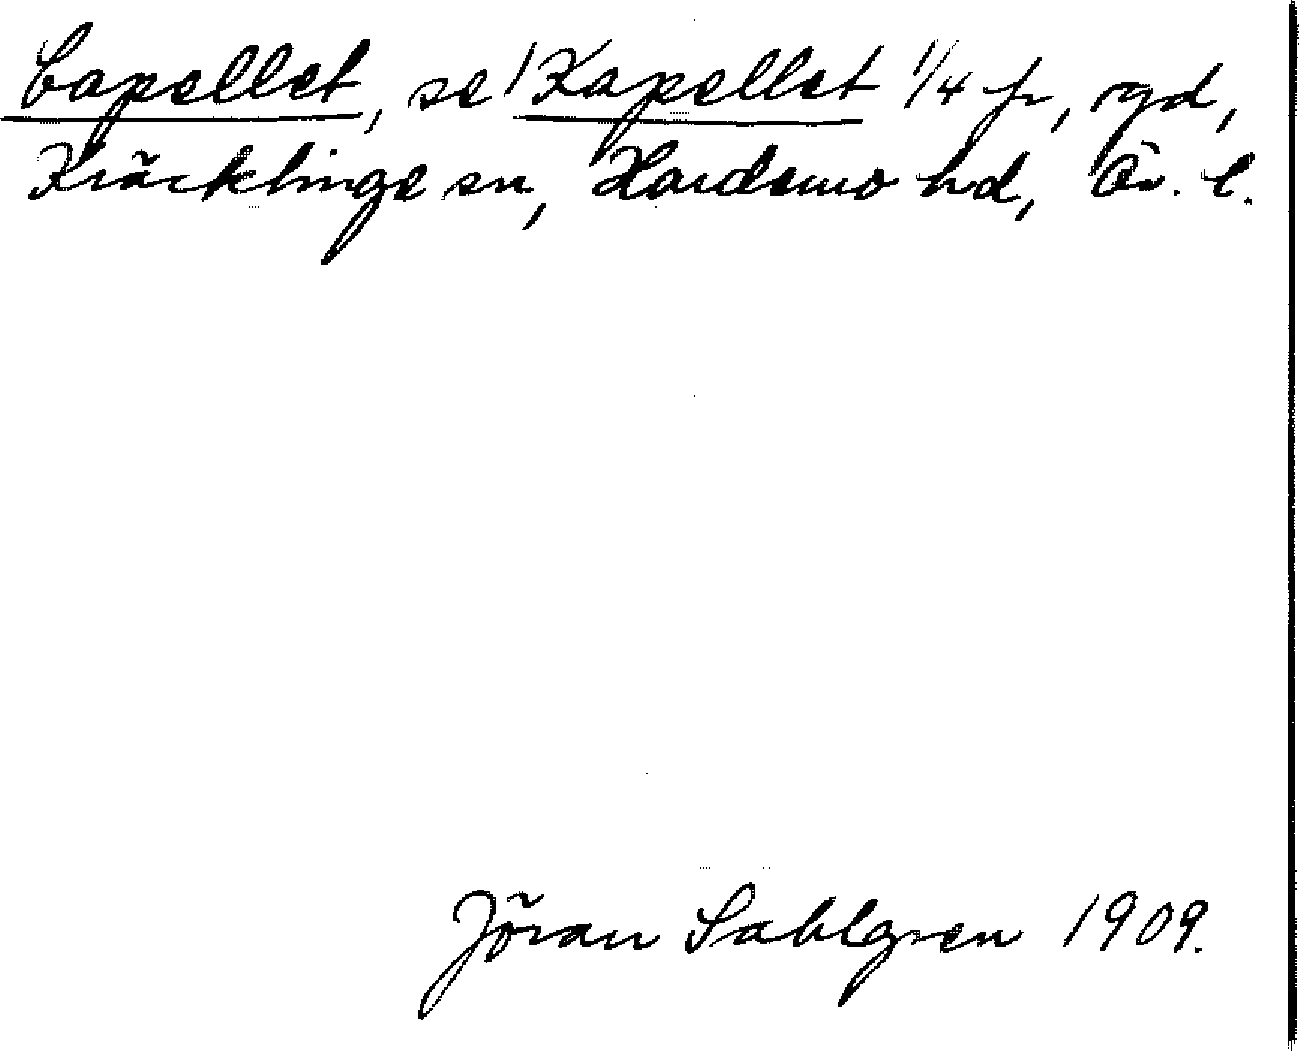 Capellet, se 1 Kapellet 1/4 fr, rgd,
Kräcklinge sn, Hardemo hd, Ör. l.
Jöran Sahlgren 1909.